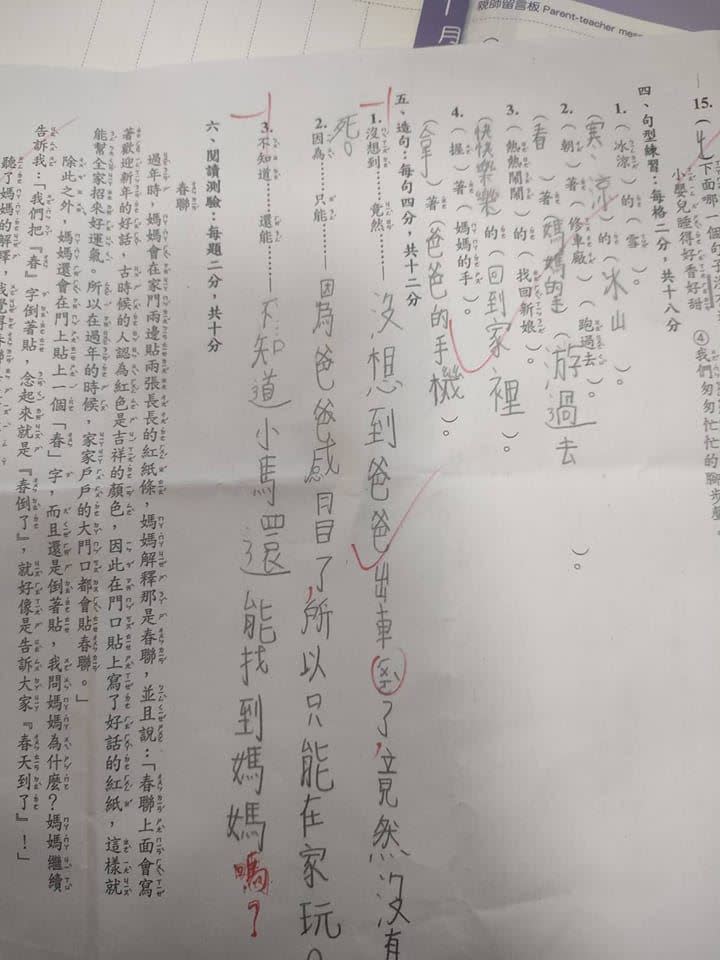 親師留言板 Parent-teacher mes
一月
15.(ㄣ)下面哪一個句
小嬰兒睡得好香好甜 ④我們匆匆忙忙的腳步聲
四、句型練習:每格二分,共十八分
1.(冰涼)的(雪)。
(寒、涼)的(冰山)。
2.(朝)著(修車廠)(跑過去)。
(看)著(媽媽的手)(游過去)。
3.(熱熱鬧鬧)的(找回新娘)。
(快快樂樂)的(回到家裡)。
4.(握)著(媽媽的手)。
(拿)著(爸爸的手機)。
五、造句:每句四分,共十二分
1.沒想到……竟然……沒想到爸爸出車了,竟然沒有
死。
2.因為……只能……因為爸爸感冒了,所以只能在家玩。
3.不知道……還能……不知道小馬還能找到媽媽嗎?
六、閱讀測驗:每題二分,共十分
春聯
過年時,媽媽會在家門兩邊貼兩張長長的紅紙條,媽媽解釋那是春聯,並且說:「春聯上面會寫
著歡迎新年的好話,古時候的人認為紅色是吉祥的顏色,因此在門口貼上寫了好話的紅紙,這樣就
能幫全家招來好運氣。所以在過年的時候,家家戶戶的大門口都會貼春聯。」
除此之外,媽媽還會在門上貼上一個「春」字,而且還是倒著貼,我問媽媽為什麼?媽媽繼續
告訴我:「我們把『春』字倒著貼,念起來就是『春倒了』,就好像是告訴大家『春天到了』!」
聽了媽媽的解釋,我覺得春聯